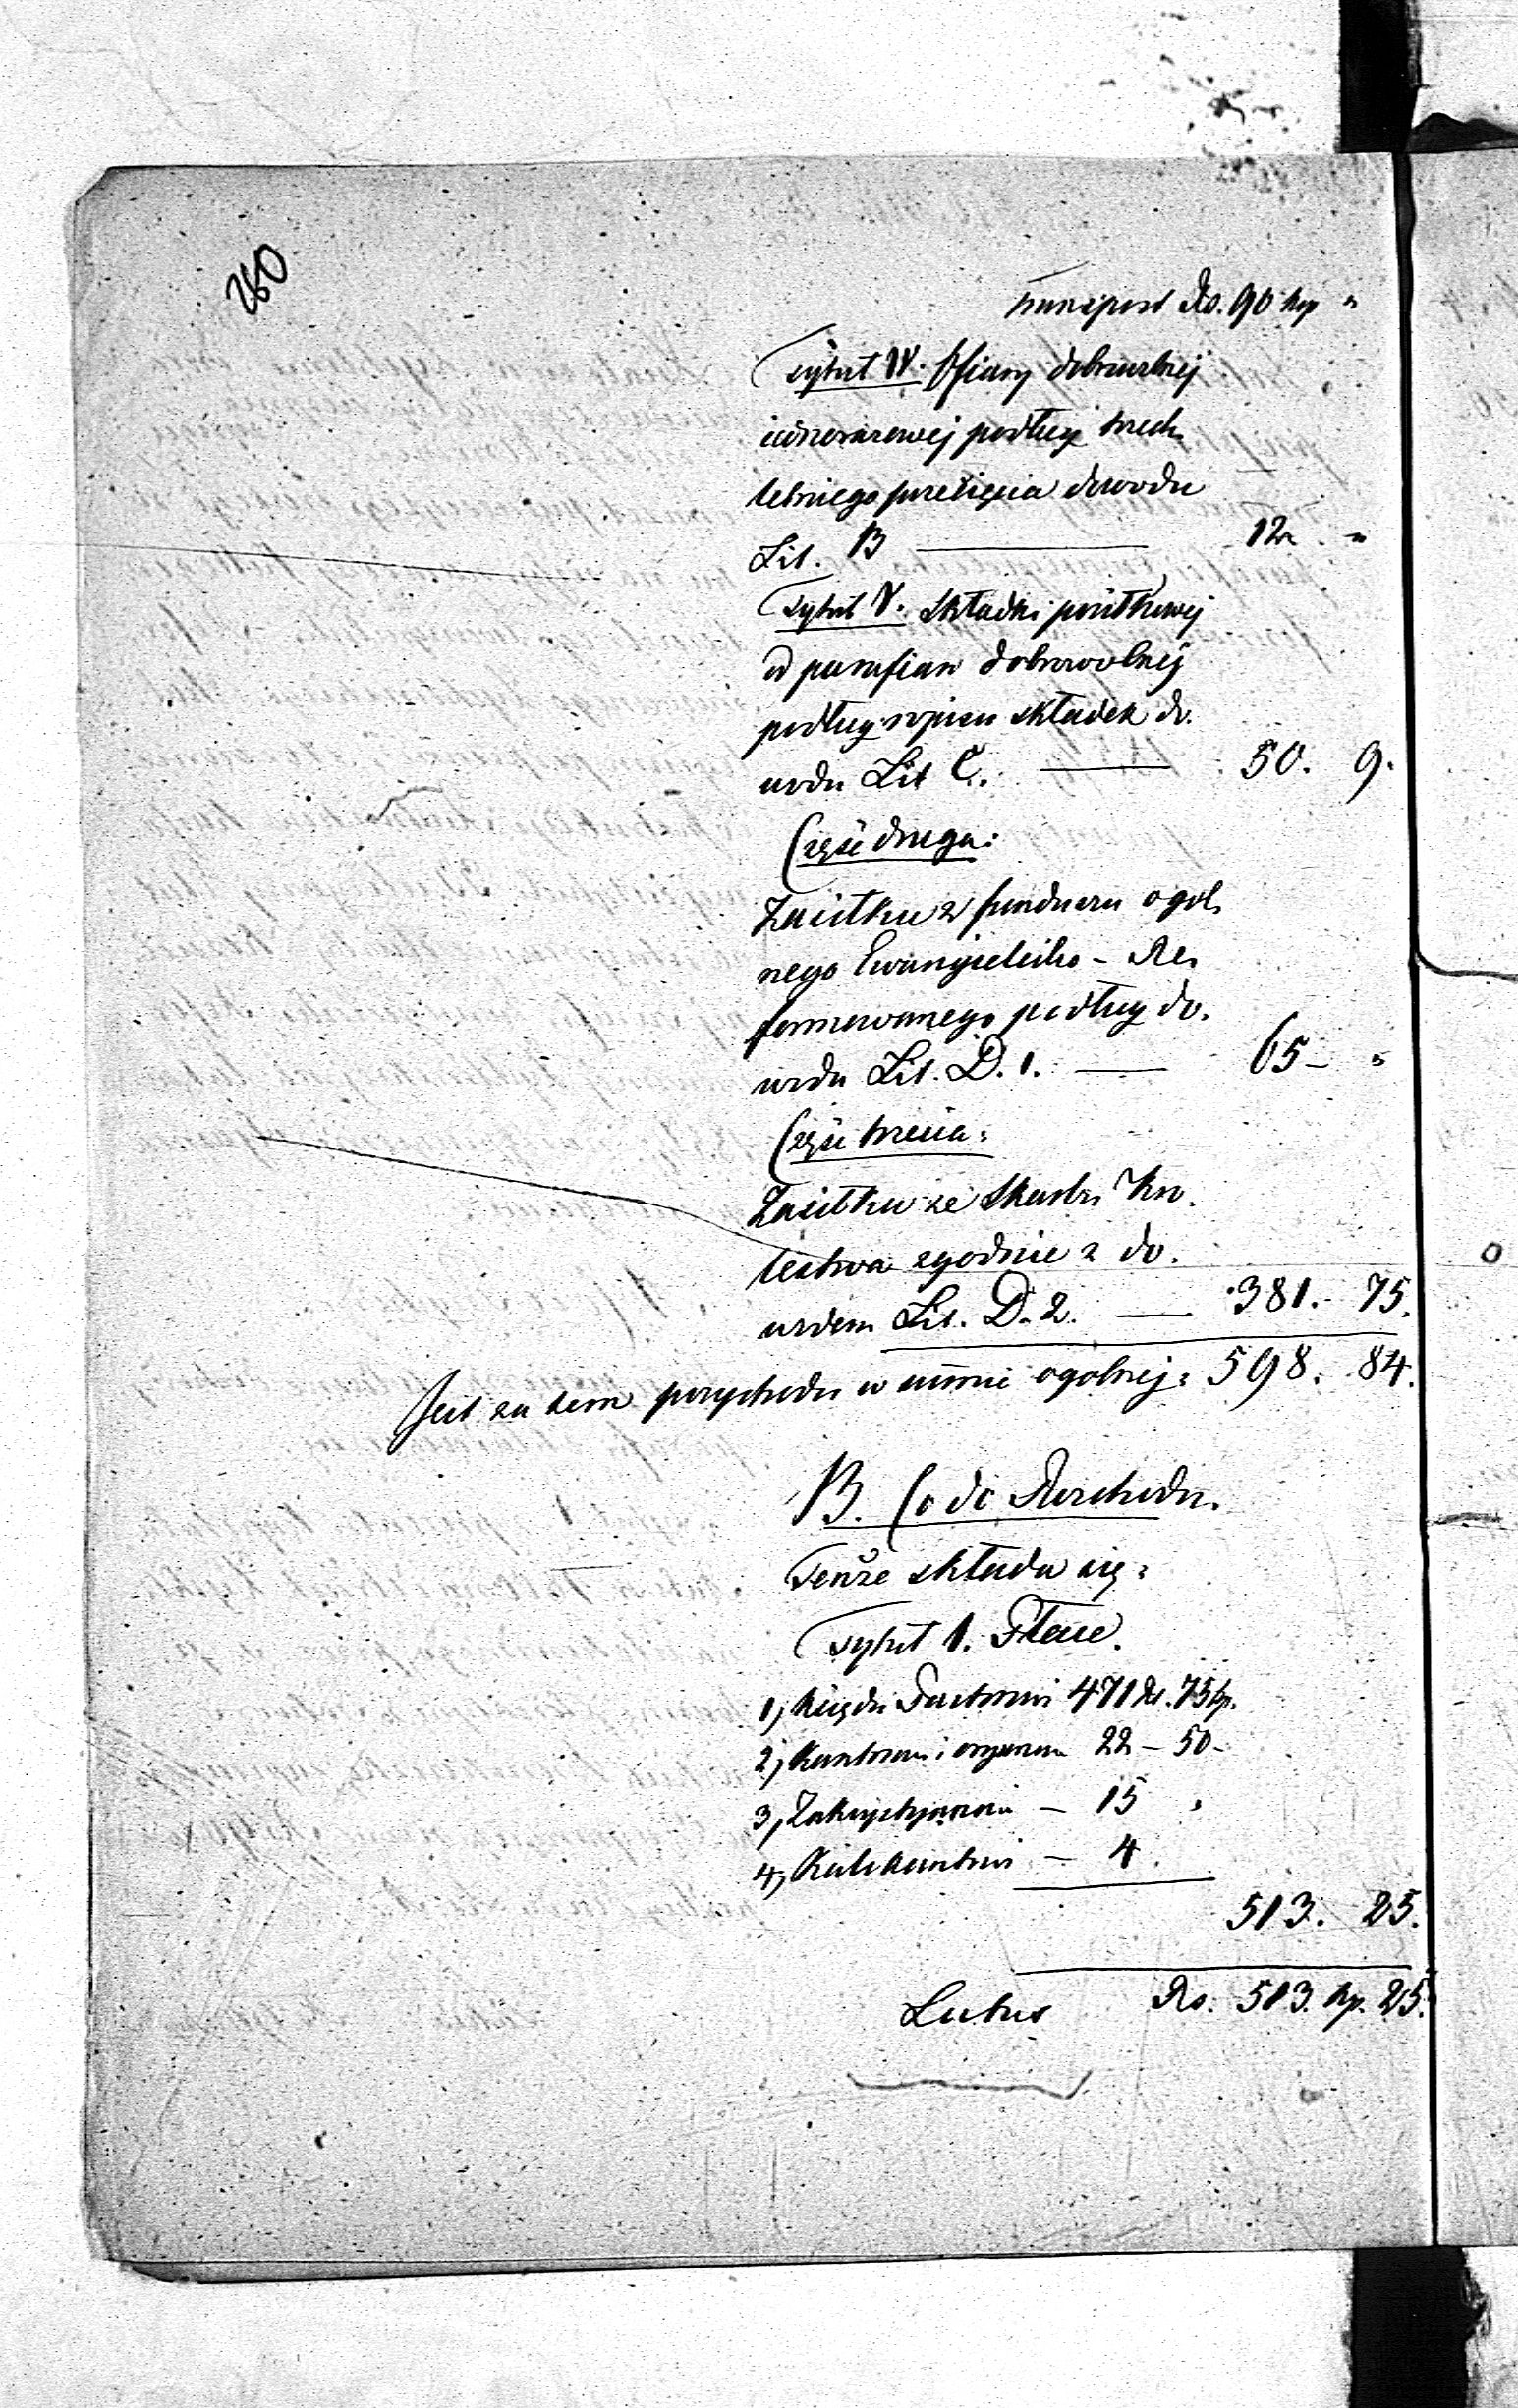 260
transport Rs. 90 kp "
Tytuł IV. Ofiary dobrowolnej
podług trzech
letniego przecięcia dowodu
Lit. B — 12 . "
Tytuł V. Składki
od parafian dobrowolnej
podług spisu składek do.
wodu Lit C. — 50. 9.
Część druga:
Zasiłku z funduszu ogól.
nego Ewangielicko - Re.
formowanego podług do.
wodu Lit. D. 1. — 65 - "
Część trzecia:
Zasiłku ze Skarbu Kró.
lestwa zgodnie z do.
wodem Lit. D. 2. — 381. - 75.
Jest za tem przychodu w summie ogolnej: 598. 84.
B. Co do Rozchodu.
Tenże składa się:
Tytuł 1. Płace.
1, Księdzu Pastorowi 471 Rs. 75 kp.
2, Kantorowi i organom 22 - 50 -
3, Zakrystyanowi — 15 "
4, Kalikantowi — 4.
513. 25.
Latus Rs. 513. kp. 25.